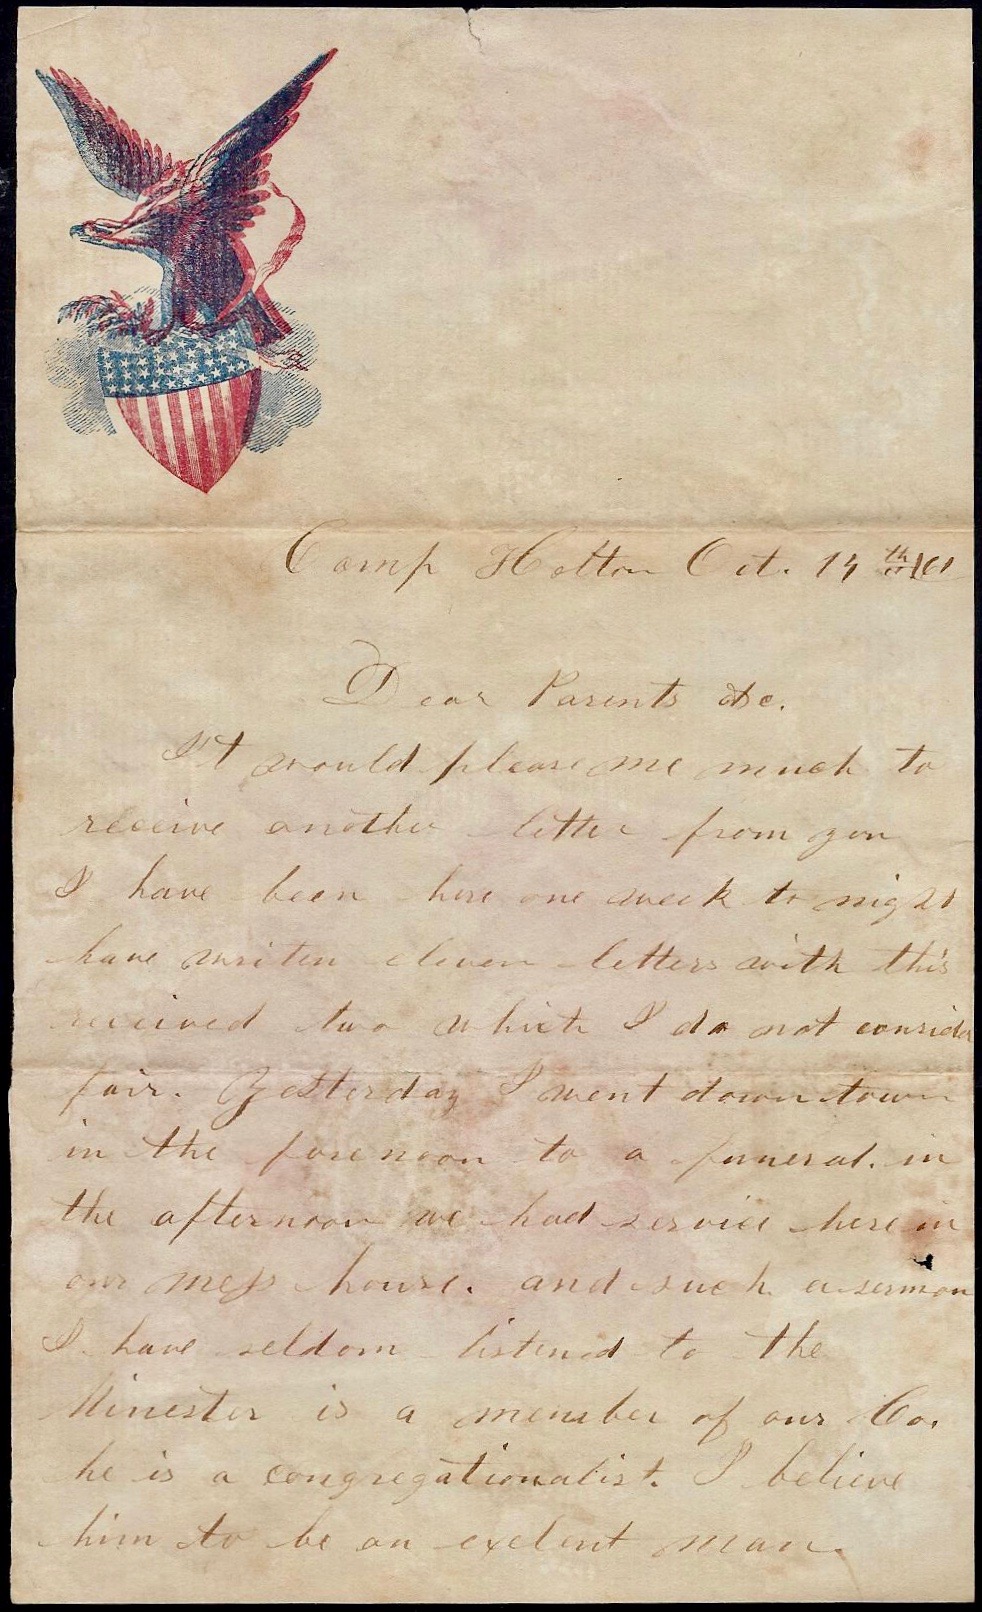 Camp Holton Oct. 14th 
Dear Parents &c.
I't would please me much to
receive another letter from you
I have been here one week to night
have writen eleven letters with this
received two which I do not consider
fair. Yesterday I went down town
in the forenoon to a funeral. in
the afternoon we had service here in
our mess house. and such a sermon
I have seldom listened to the
Minester is a member of our Co.
he is a congregationalist. I believe
him to be an exelent man.